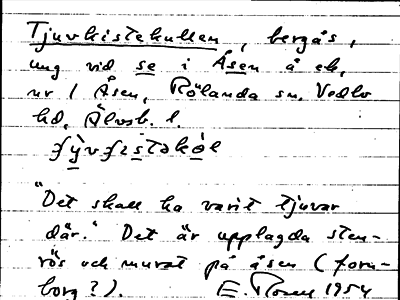 Tjuvkistekullen, bergås,
ung vid se i Åsen å ek,
nr 1 Åsen, Rölanda sn. Vedbo
hd, Älvsb. l.
"Det skall ha varit tjuvar
där." Det är upplagda sten-
rös och murat på åsen (forn-
borg?). E. Rosen 1954